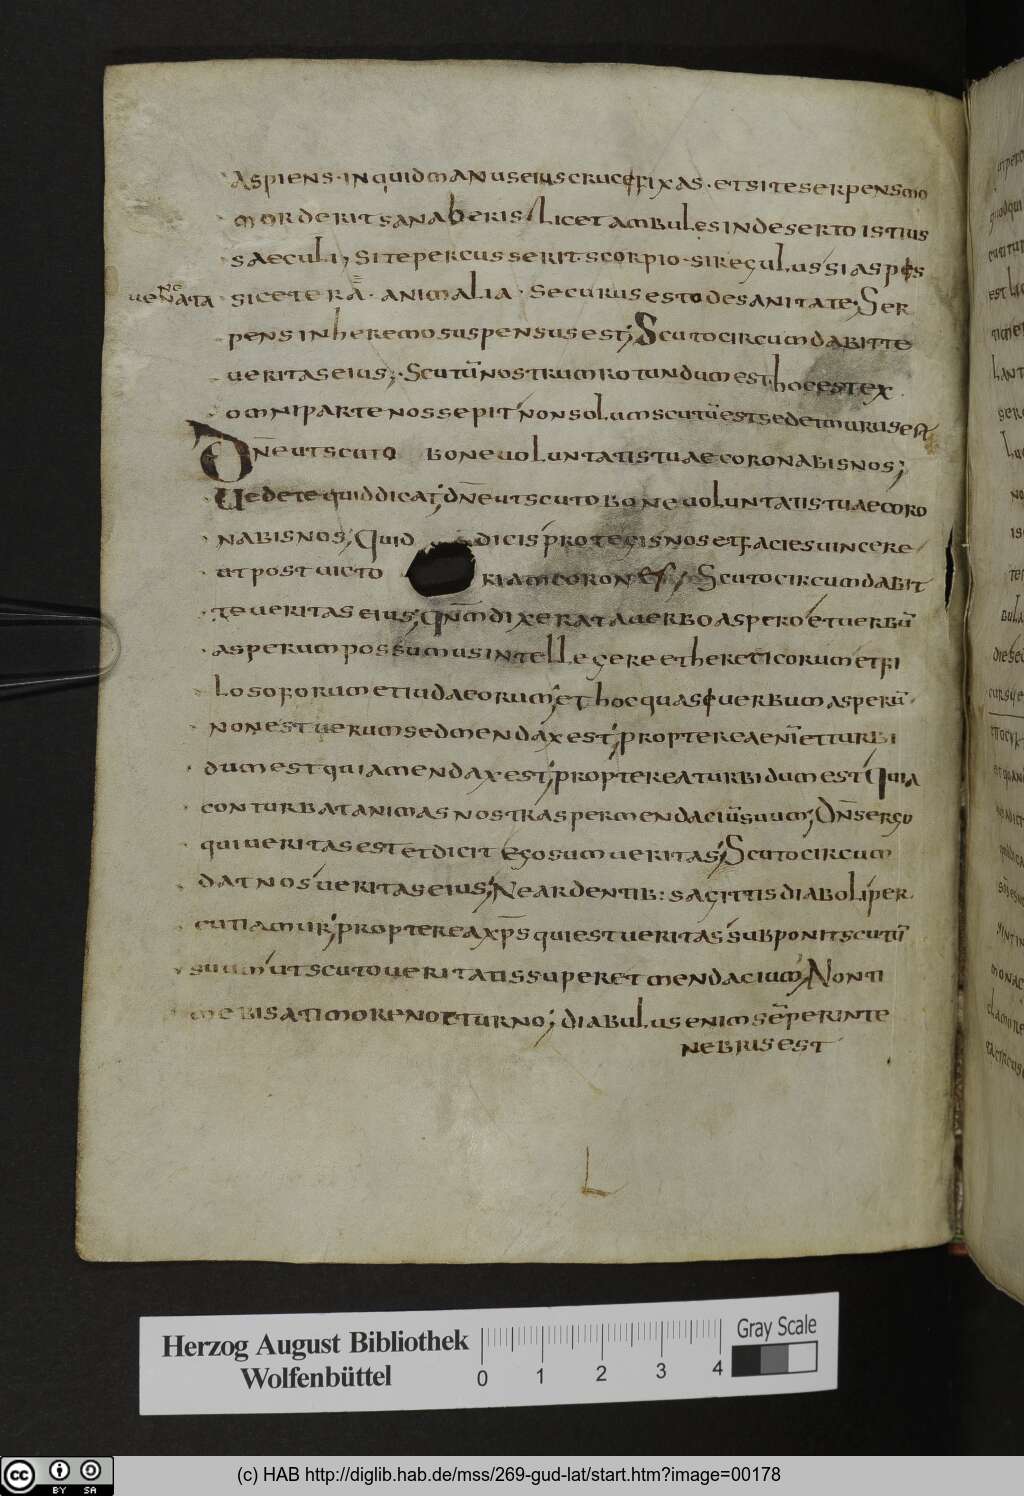 aspiens · inquid manus eius cruce fixas · et si te serpens mo
morderit sanaberis / licet ambules in deserto istius
saeculi, si te percusserit scorpio · si regulus si aspes
uenata si cetera · animalia · securus esto de sanitate; Ser
pens in heremo suspensus est; Scuto circumdabit te
ueritas eius; · Scutū nostrum rotundum est hoc est ex
omni parte nos sepit non solum scutū est sed et murus
Dn̄e ut scuto bone uoluntatis tuae coronabis nos;
Uedete quid dicat; dn̄e ut scuto bone uoluntatis tuae coro
nabis nos; Quid dicis proteges nos et facies uincere
at post uicto riam coron Scuto circumdabit
te ueritas eius; qn̄m dixerat a uerbo aspero et uerbū
asperum possumus intellegere et hereticorum et fi
losoforum et iudaeorum; et hoc quasi uerbum asperū ·
non est uerum sed mendax est; propterea enī et turbi
dum est quia mendax est; propterea turbidum est Quia
conturbat animas nostras per mendaciū suum; Dn̄s ergo
qui ueritas est et dicit ego sum ueritas; Scuto circum
dat nos ueritas eius; Ne ardentib: sagittis diaboli per
cutiamur; propterea xp̄s qui est ueritas subponit scutū
suum ut scuto ueritatis superet mendacium; Non ti
mebis a timore nocturno; diabulus enim semper in te
nebris est
L
Herzog August Bibliothek
Wolfenbüttel
0 1 2 3 4
Gray Scale
cc BY SA
(c) HAB http://diglib.hab.de/mss/269-gud-lat/start.htm?image=00178